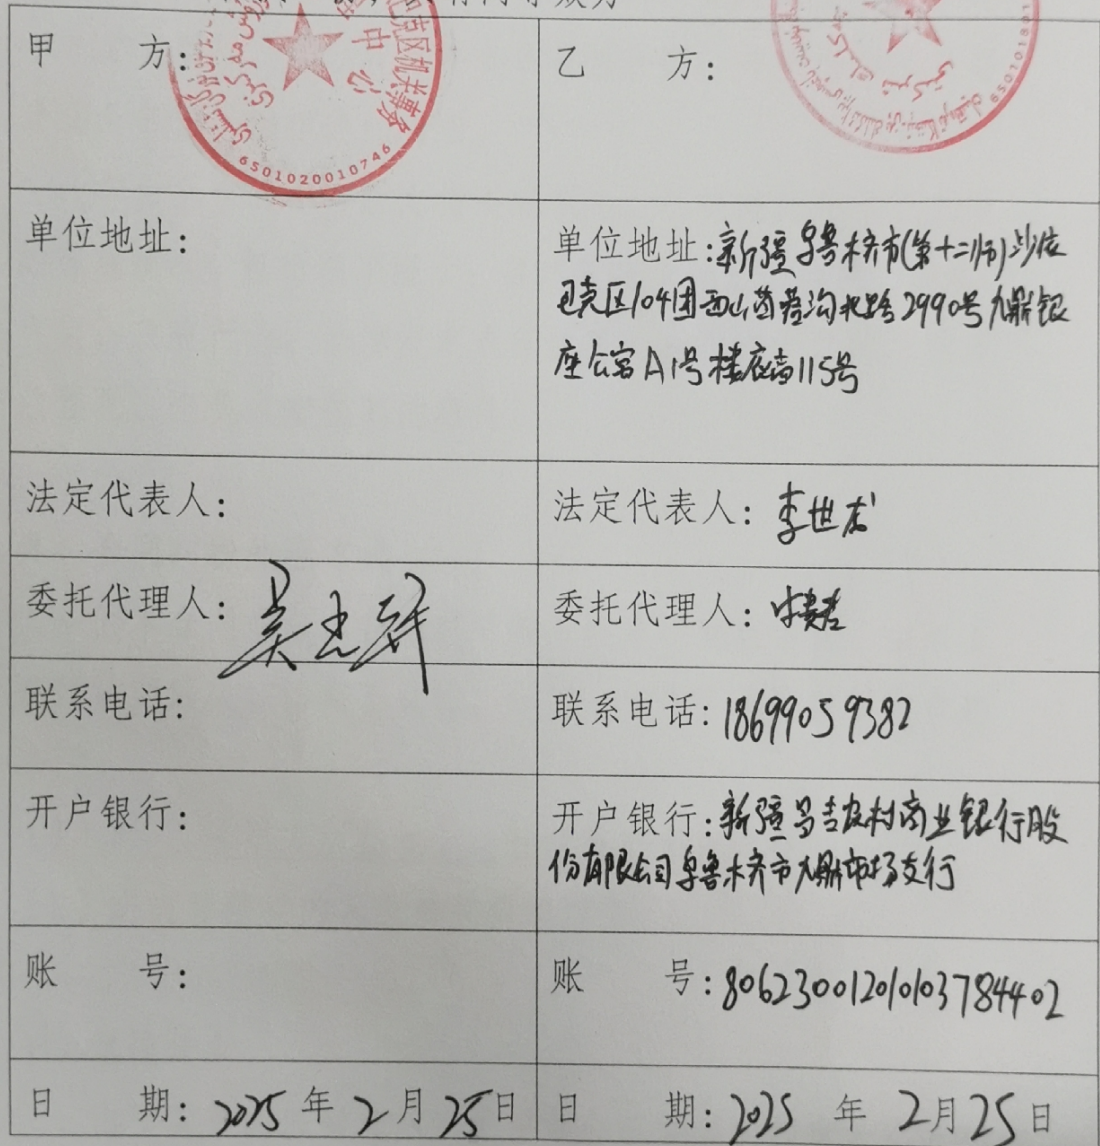 甲 方:
巴克区机关事务
中心
6501020010746
乙 方:
65010180
单位地址:
单位地址:新疆乌鲁木齐市(第十二师)沙依
巴克区104团西山茴香沟北路2990号九鼎银
座公寓A1号楼底商115号
法定代表人:
法定代表人: 李世
委托代理人: 吴
委托代理人:
联系电话:
联系电话: 18699059382
开户银行:
开户银行:新疆昌吉农村商业银行股
份有限公司乌鲁木齐市九鼎市场支行
账 号:
账 号:806230012010103784402
日 期: 2025 年 2 月 25 日
日 期: 2025 年 2 月 25 日